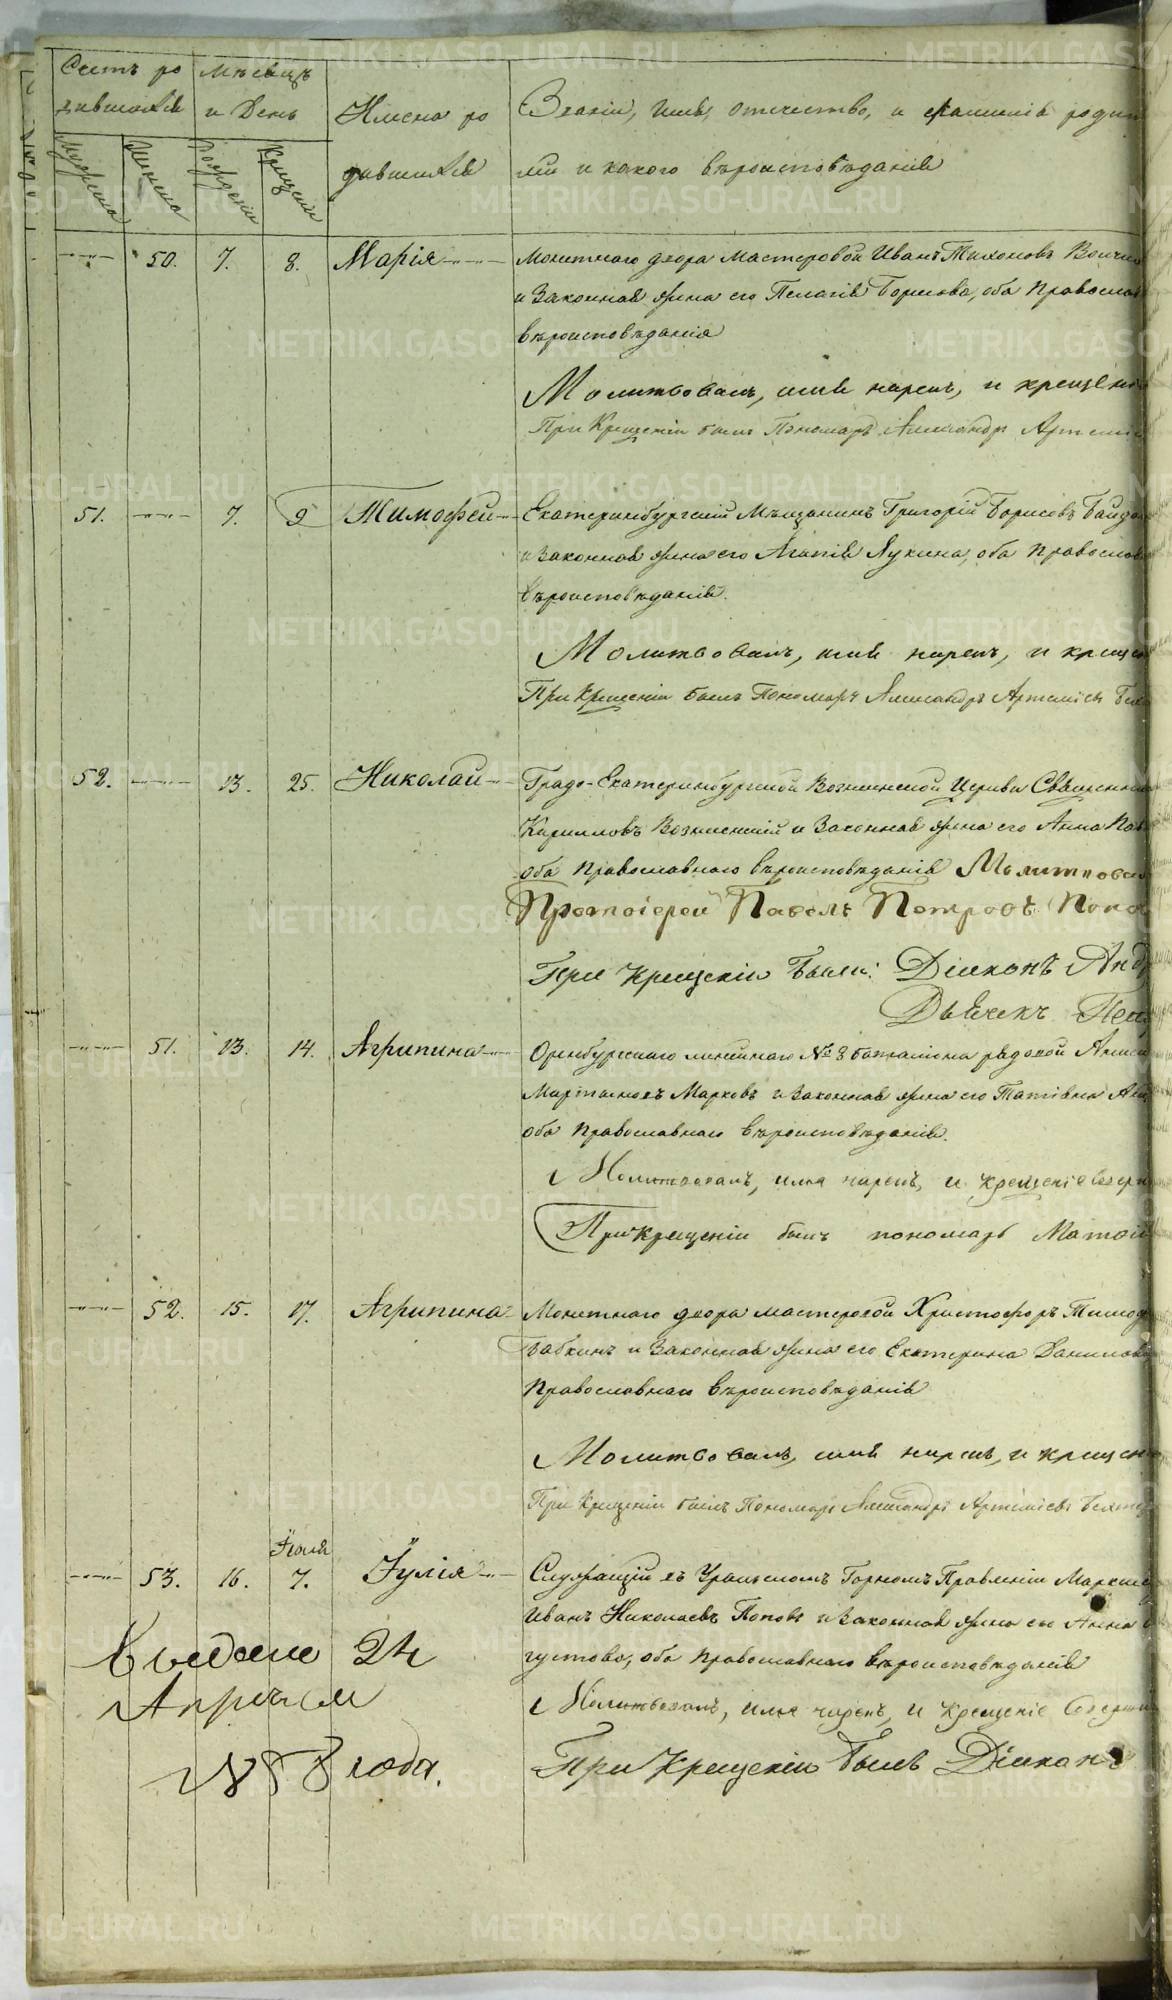 Счетъ ро
дившихся
Мѣсяцъ
и День
Имена ро
дившихся
Званіе, имя, отчество, и фамилія родит
лей и какого вѣроисповѣданія
Мужеска
Женска
Рожденія
Крещенія
50. 7. 8. Марія Монетнаго двора мастеровой Иванъ Тихоновъ
и законная жена его Пелагія Борисова, оба Православ
вѣроисповѣданія
Молитвовалъ, имя нарекъ, и крещеніе
При Крещеніи былъ Пономарь Александръ Артеміе
51. 7. 9 Тимофей Екатеринбургскій Мѣщанинъ Григорій Борисовъ
и законная жена его Агапія Лукина, оба Православ
вѣроисповѣданія.
Молитвовалъ, имя нарекъ, и креще
При Крещеніи былъ Пономарь Александръ Артеміевъ
52. 13. 25. Николай Градо-Екатеринбургской Вознесенской Церкви Священни
Кирилловъ Вознесенскій и законная жена его Анна
оба Православнаго вѣроисповѣданія Молитвова
Протоіерей Павелъ Петровъ Попо
При крещеніи были: Діаконъ Анд
Дьячекъ
51. 13. 14. Агрипина Оренбургскаго линейнаго № 8 баталіона рядовой
Мартыновъ Марковъ и законная жена его Татіяна
оба Православнаго вѣроисповѣданія.
Молитвовалъ, имя нарекъ, и крещеніе соверш
При крещеніи былъ пономарь
52. 15. 17. Агрипина Монетнаго двора мастеровой Христофоръ Тимоф
Бабкинъ и законная жена его Екатерина Данилова
Православнаго вѣроисповѣданія
Молитвовалъ, имя нарекъ, и крещен
При Крещеніи былъ Пономарь Александръ Артеміевъ
Іюля
53. 16. 7. Іулія Служащій въ Уральскомъ Горномъ Правленіи
Иванъ Николаевъ Поповъ и законная жена его Анна
густова, оба Православнаго вѣроисповѣданія
Молитвовалъ, имя нарекъ, и крещеніе соверши
При крещеніи былъ Діаконъ
24
Апрѣля
года.
METRIKI.GASO-URAL.RU